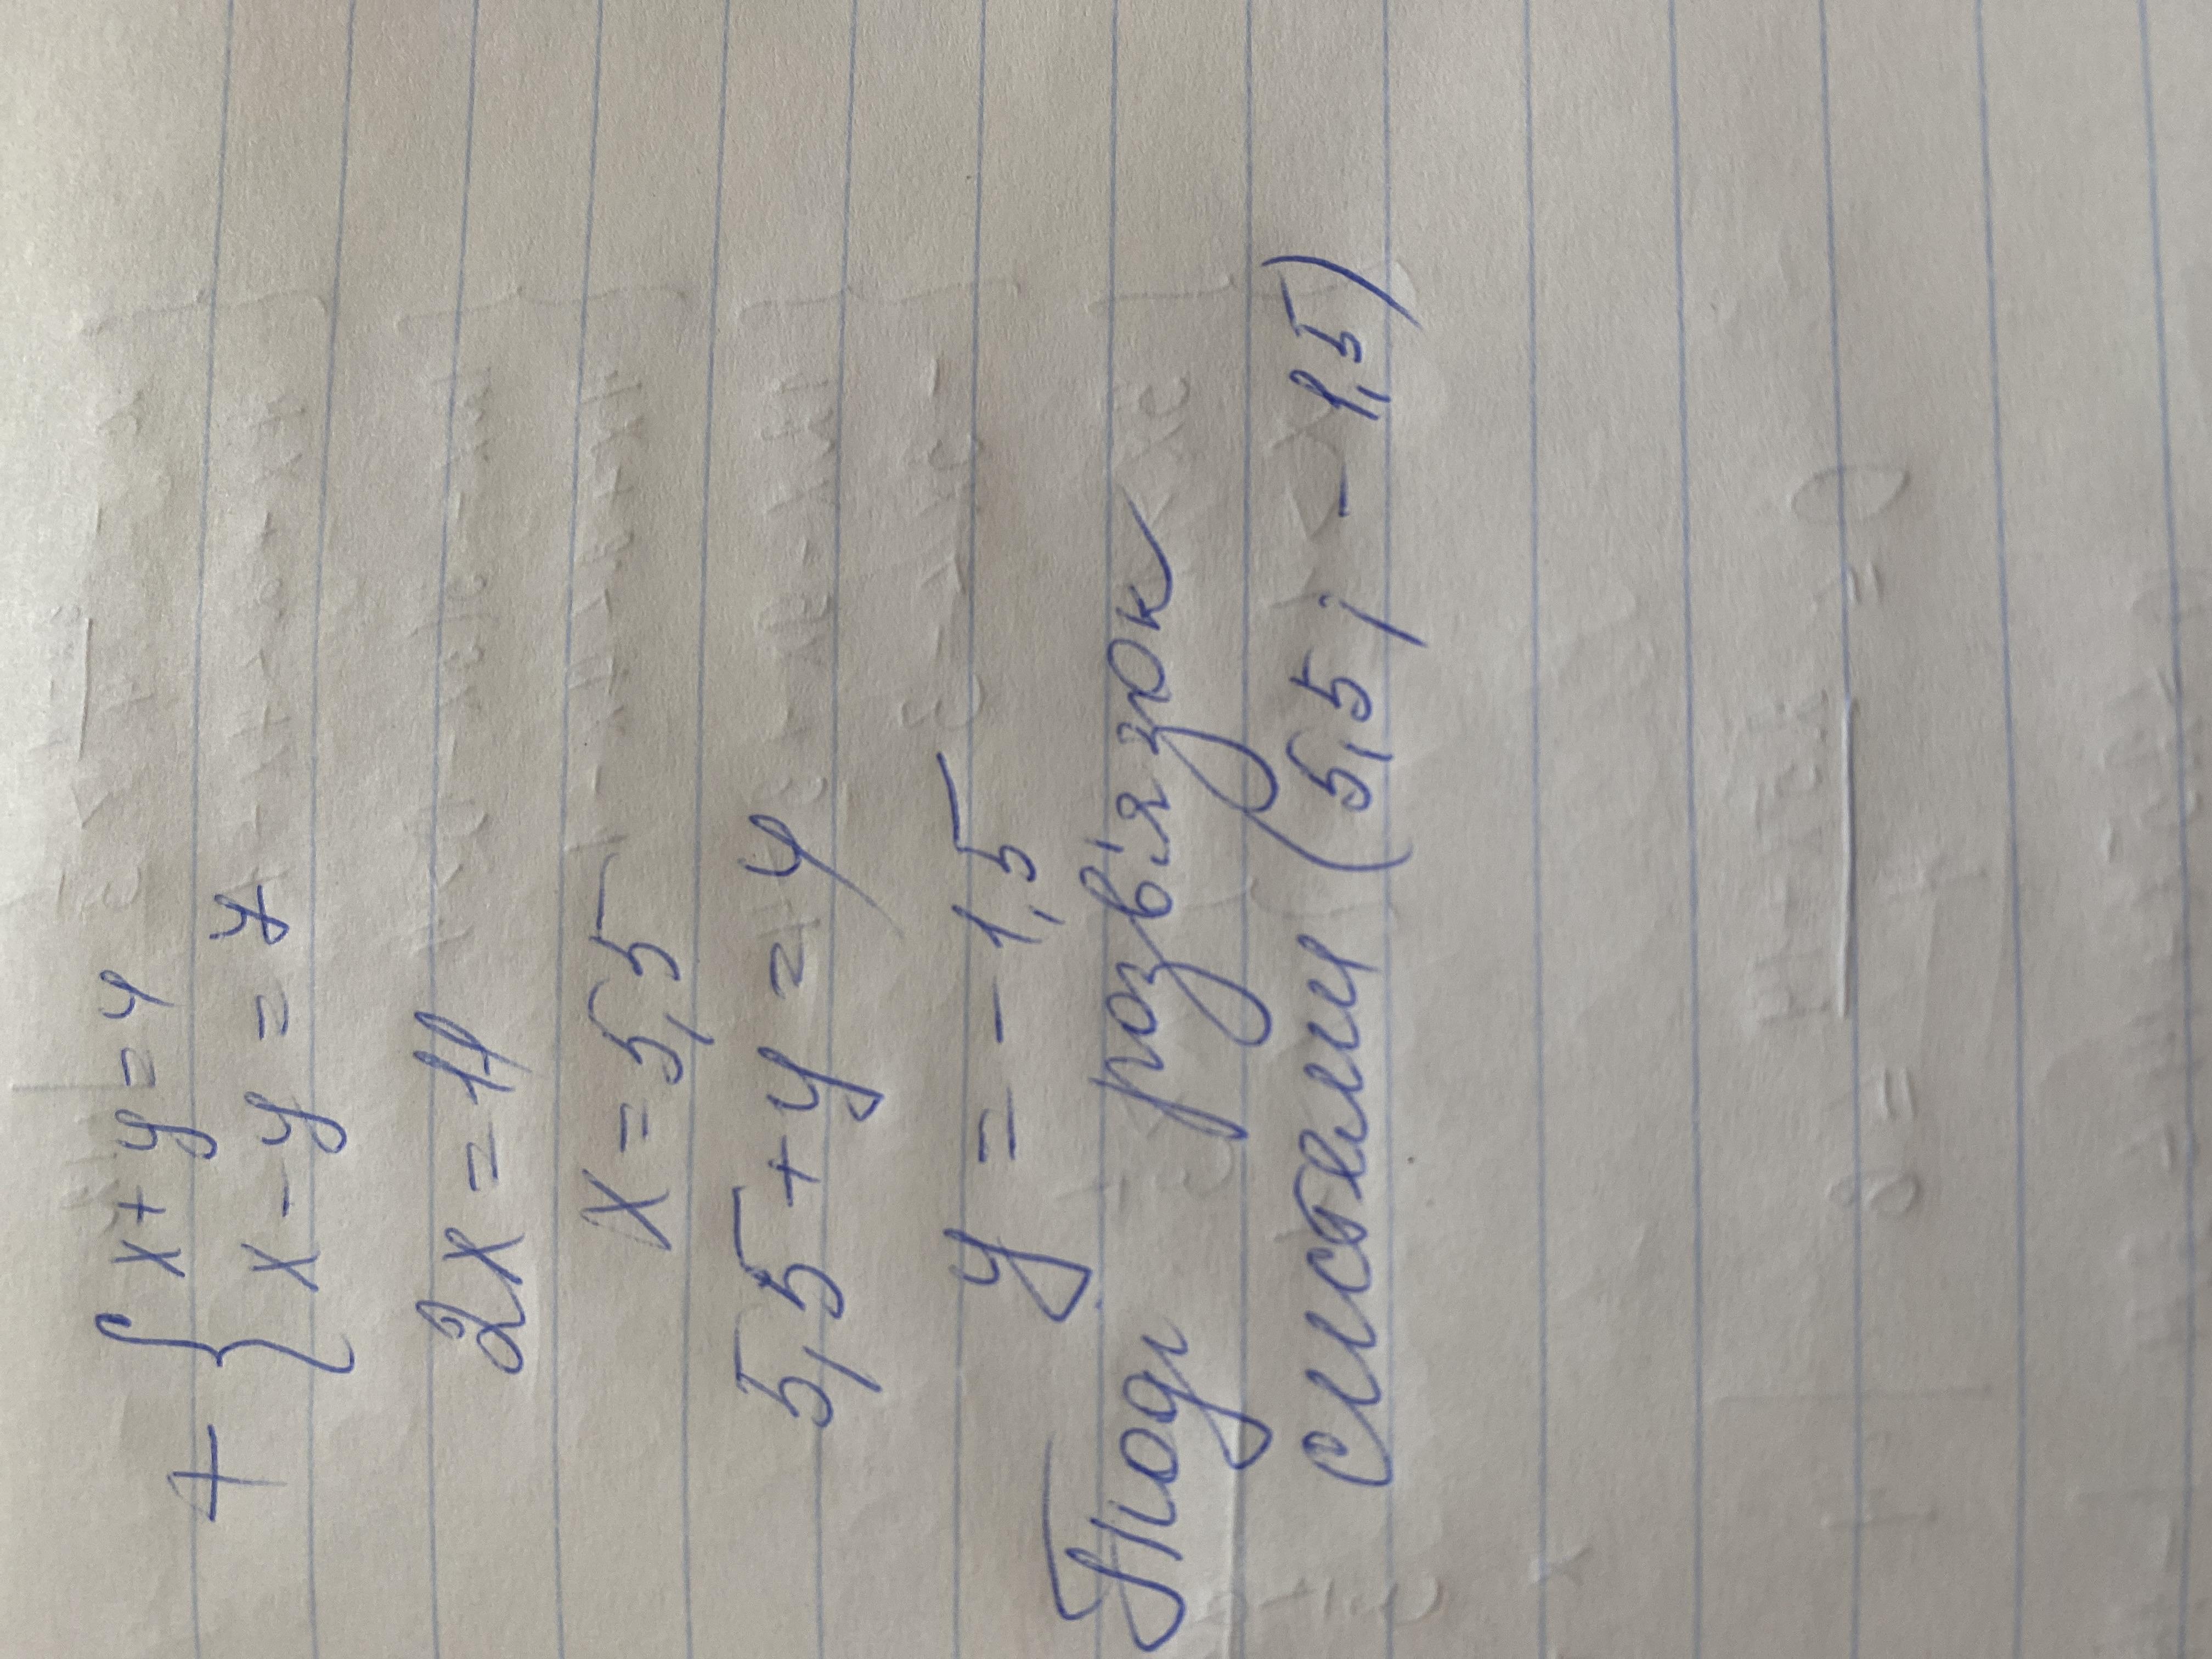 + { x + y = 4
x - y = 7
2x = 11
x = 5,5
5,5 + y = 4
y = - 1,5
Тоді розв'язок
системи (5,5 ; - 1,5)